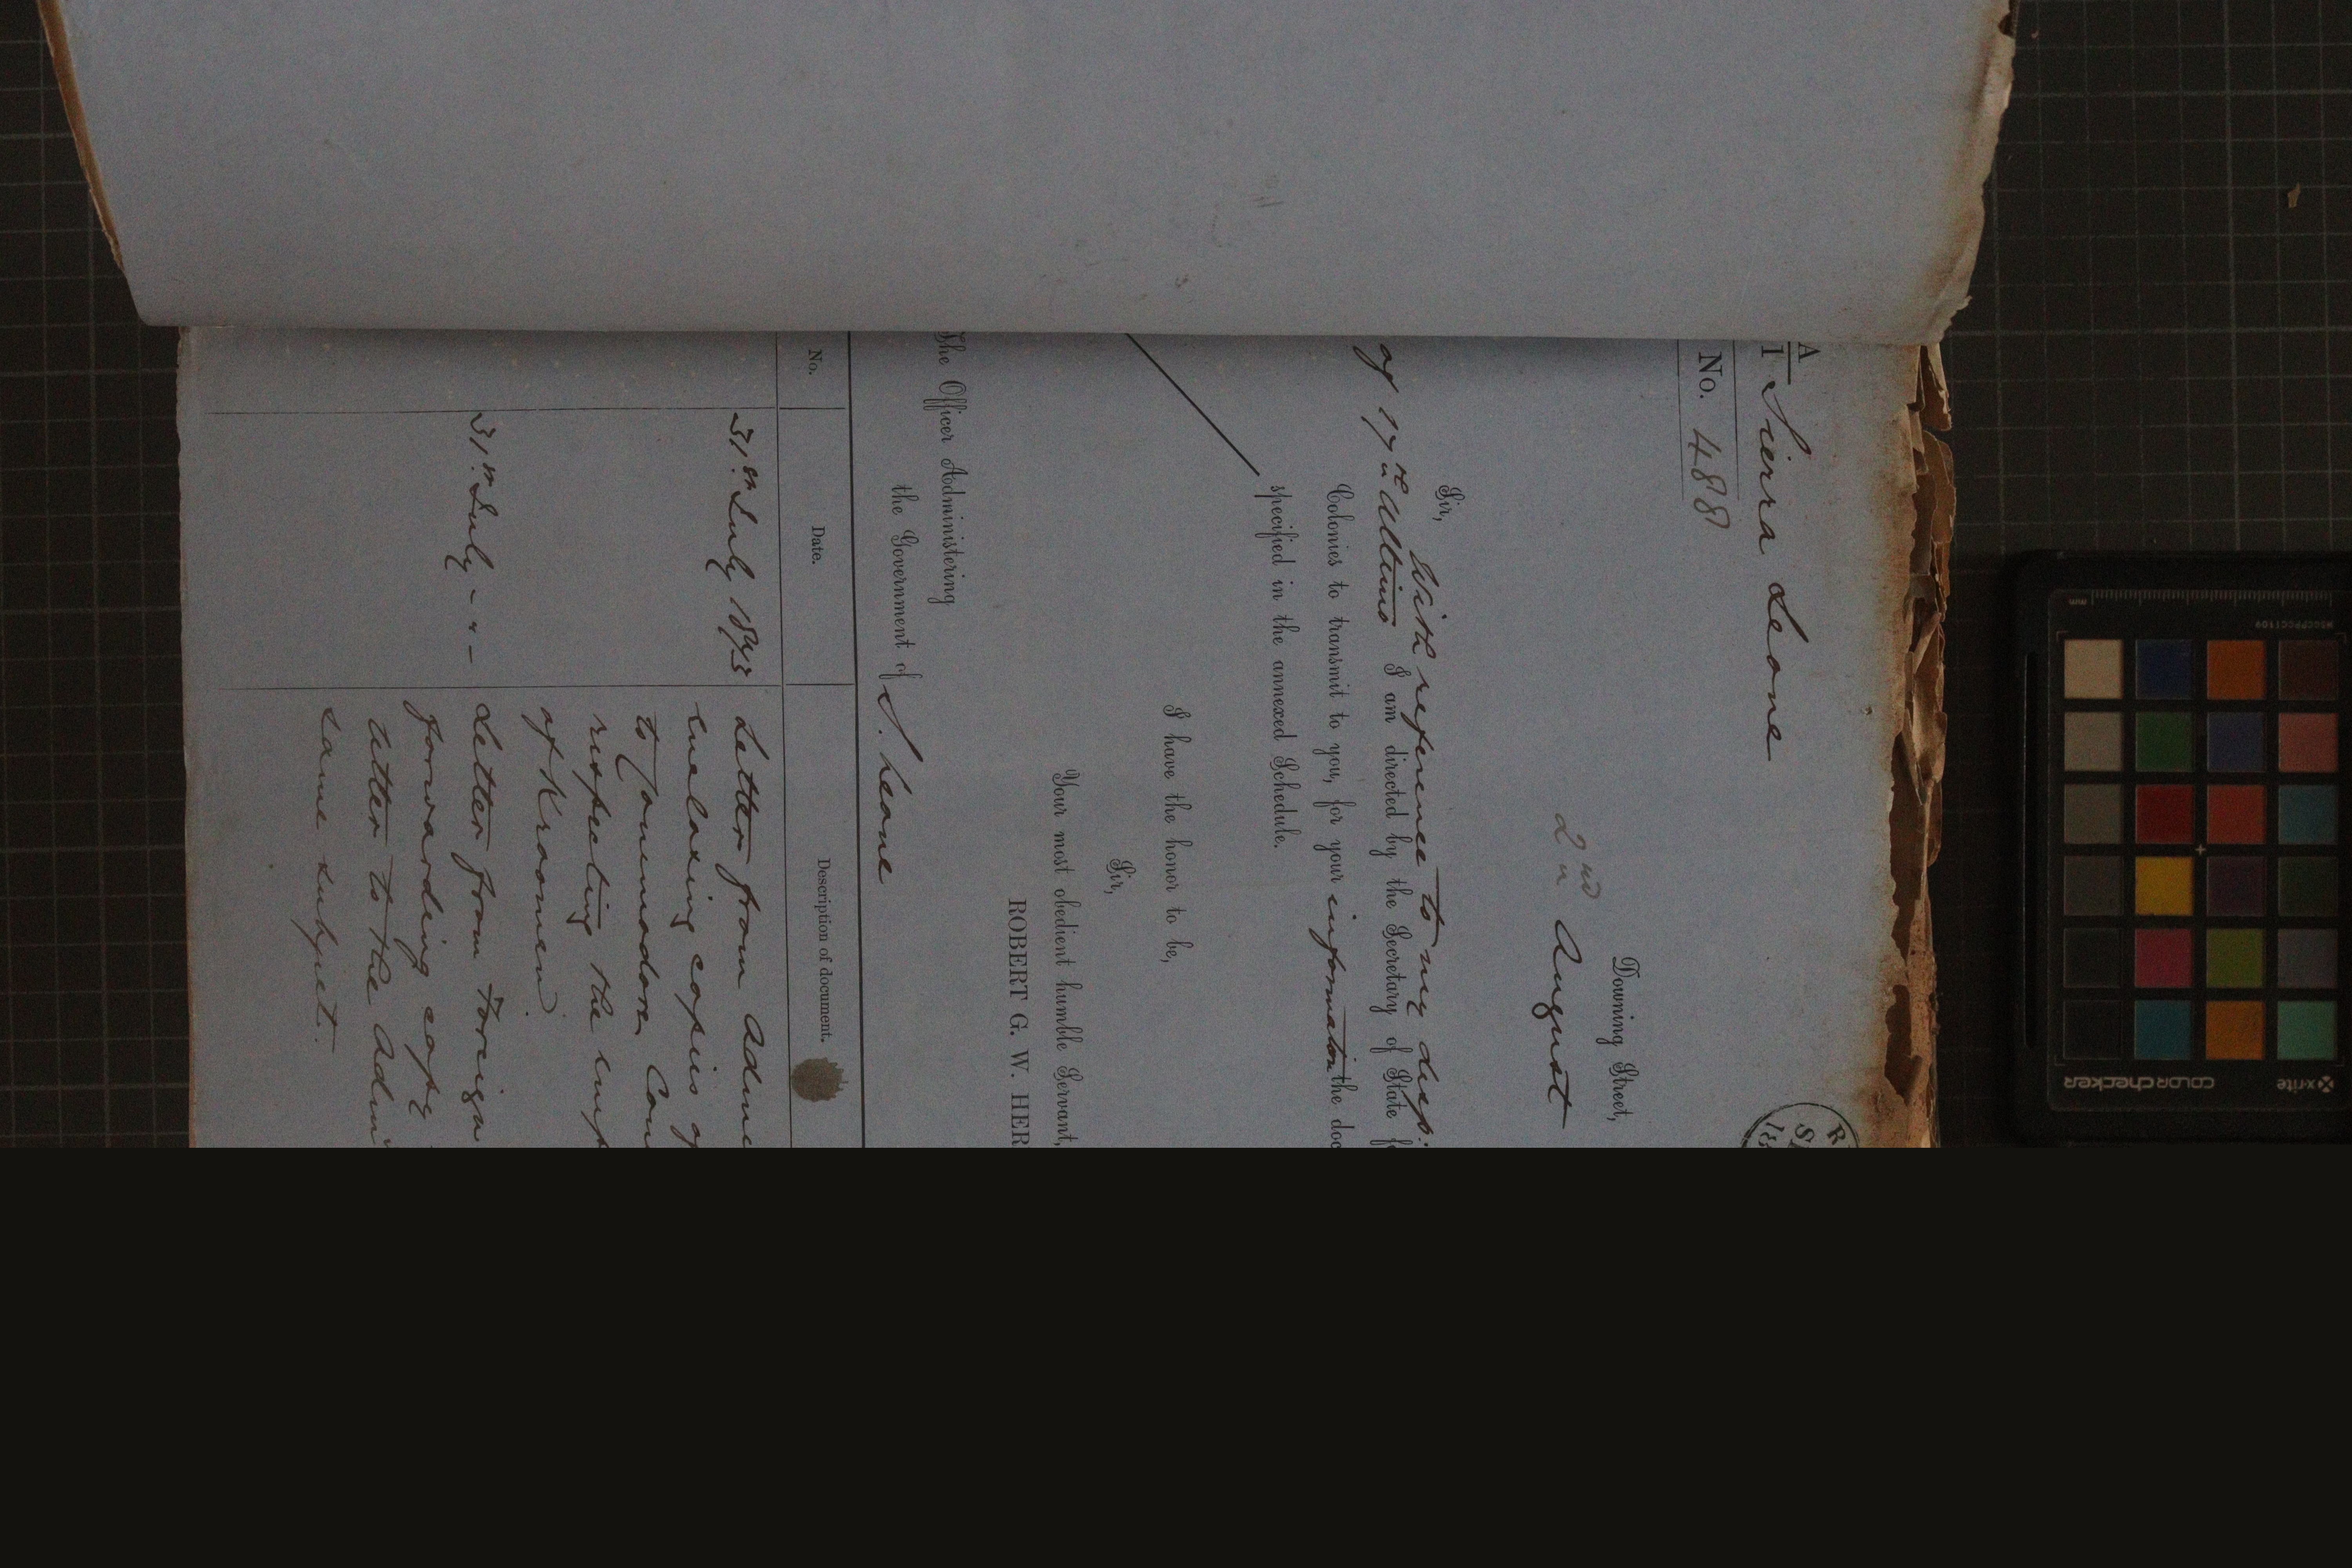 A
1
Sierra Leone
No. 488
Downing Street,
2nd August
Sir,
With reference to my desp:
of 17th Ultimo I am directed by the Secretary of State f
Colonies to transmit to you, for your information the doc
specified in the annexed Schedule.
I have the honor to be,
Sir,
Your most obedient humble Servant,
ROBERT G. W. HER
The Officer Administering
the Government of S. Leone
No. Date. Description of document.
31st July 1873 Letter from Adm
enclosing copies of
to Commodore Com
respecting the emp
of Kroomen
31st July - " - Letter from Foreign
forwarding copy
letter to the Adm
same subject.